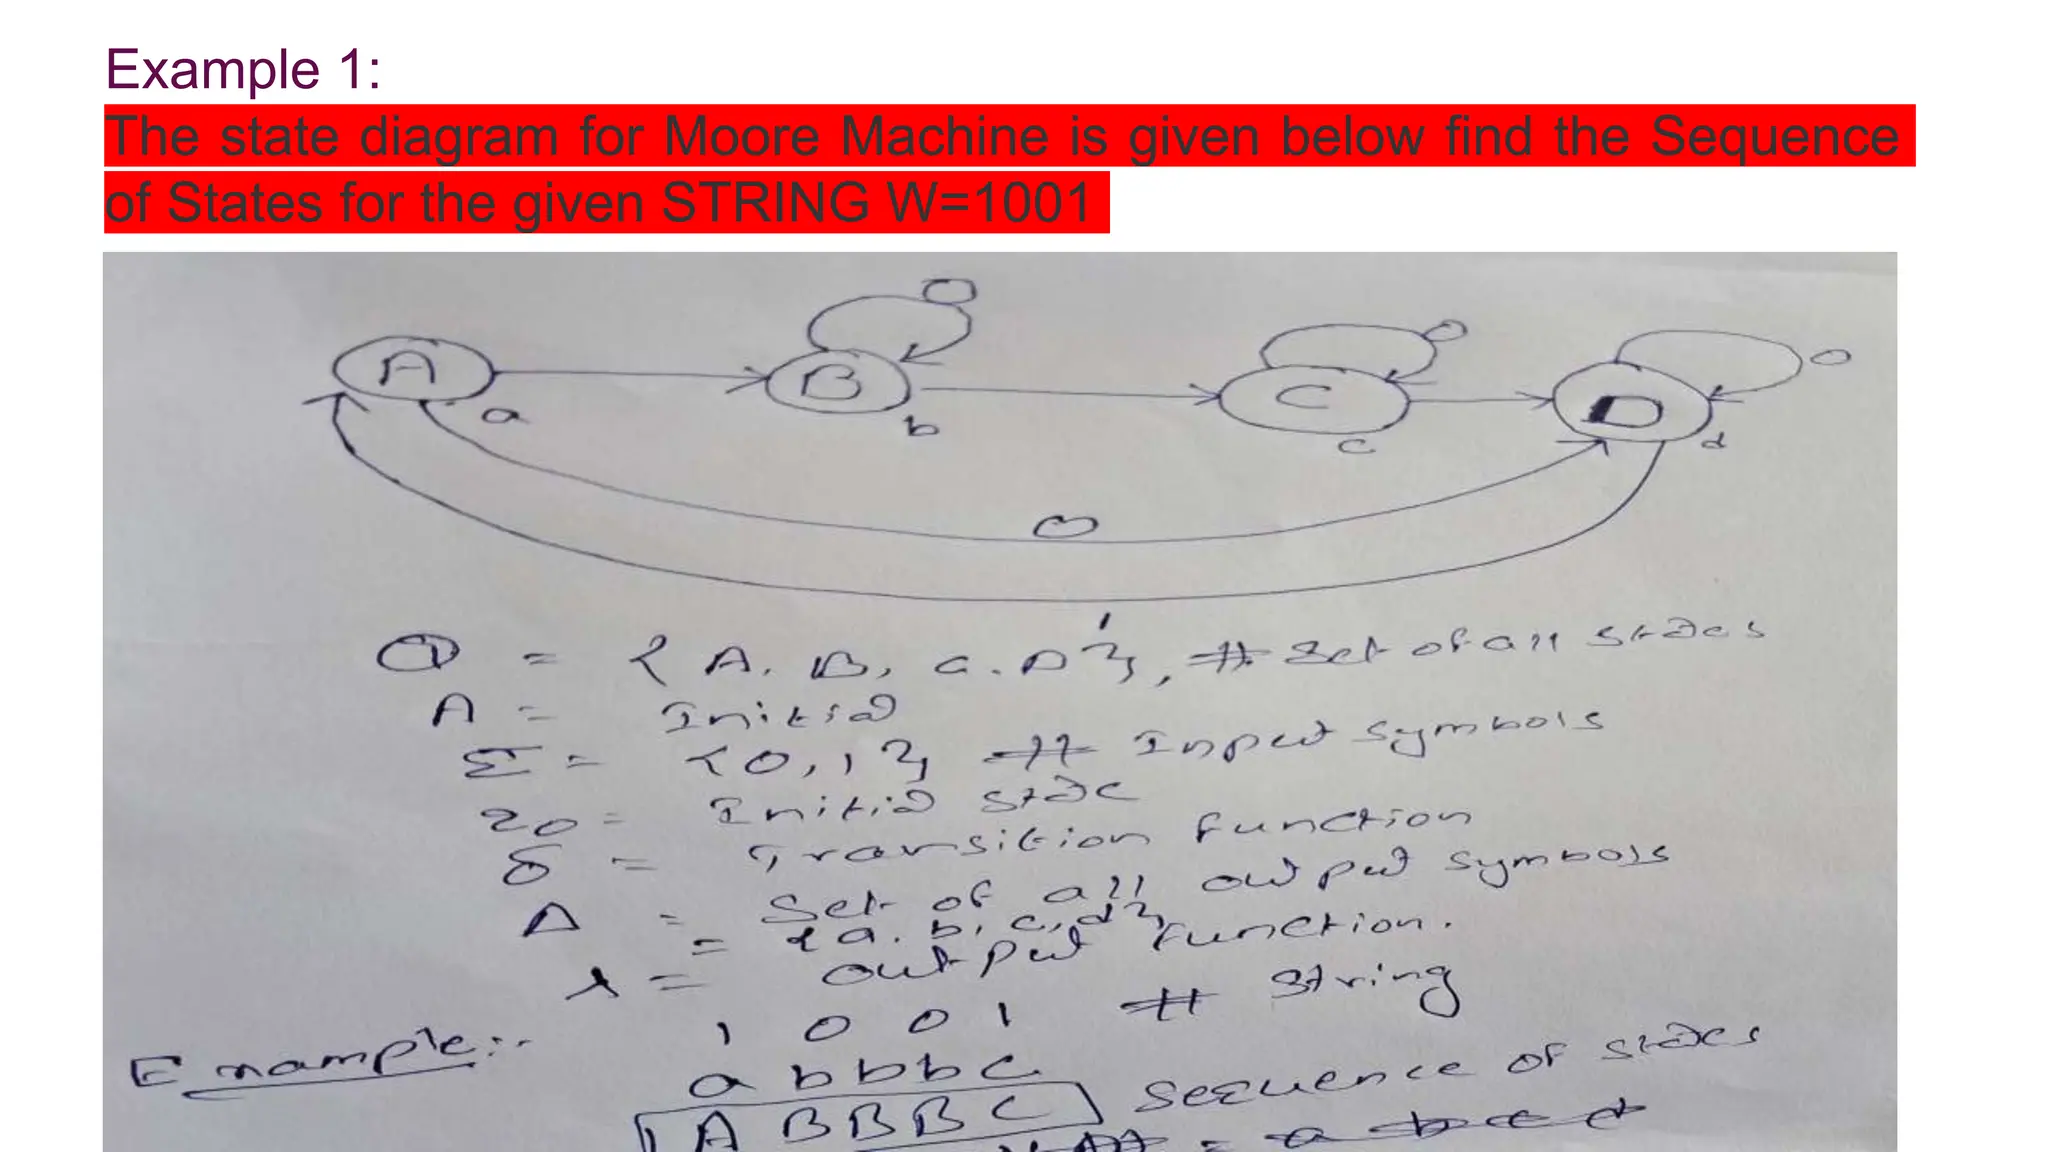 Example 1:
The state diagram for Moore Machine is given below find the Sequence
of States for the given STRING W=1001
0
0
0
A
B
C
D
a
b
c
d
0
1
Q = { A, B, C, D }, # Set of all states
A = Initial
Σ = {0, 1} # Input symbols
q0 = Initial state
δ = Transition function
Δ = Set of all output symbols
= {a, b, c, d}
λ = output function.
1 0 0 1 # String
Example:-
a b b b c
A B B B C Sequence of states
= a b c d